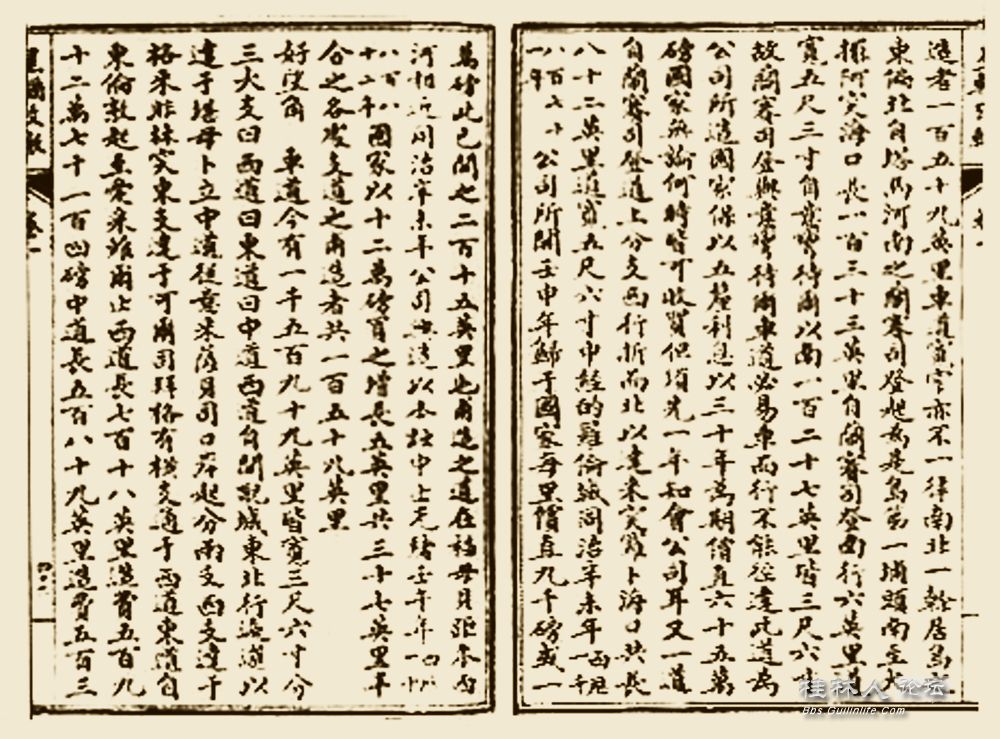 造者一百五十九英里車道寬窄亦不一律南北一幹居島
東偏北自塔馬河南之蘭賽司登起為是島第一埔頭南至大
擺阿突海口長一百三十三英里自蘭賽司登南行六英里
寬五尺三寸自意特爾以南一百二十七英里皆三尺六寸
故蘭賽司登與意特爾車道必易車而行不能徑達此道為
公司所造國家保以五釐利息以三十年為期價直六十五萬
磅國家無論何時皆可收買但須先一年知會公司耳又一道
自蘭賽司登道上分支西行折而北以達來突爾卜海口共長
八十二英里道寬五尺六寸中經的離倫緘同治辛未年西曆一千
八百七十一年公司所開壬申年歸于國家每里價直九千磅或一
萬磅此已開之二百十五英里也甫造之道在福母貝距本西
河相近同治辛未年公司興造以中止光緒壬午年西曆一千
八百八十二年國家以十二萬磅買之增長五英里共三十七英里
合之各處支道之甫造者共一百五十九英里
好望角 車道今有一千五百九十九英里皆寬三尺六寸分
三大支曰西道曰東道曰中道西道自開城東北行迤邐以
達于堪母卜立中道從意米薩貝司口岸起分兩支西支達于
格來非林突東支達于可爾司拜格有橫支通于西道東道自
東倫敦起至愛來維爾止西道長七百十八英里造費五百九
十二萬七千一百四磅中道長五百八十九英里造費五百三
桂林人 论坛
Bbs.Guilinlife.Com